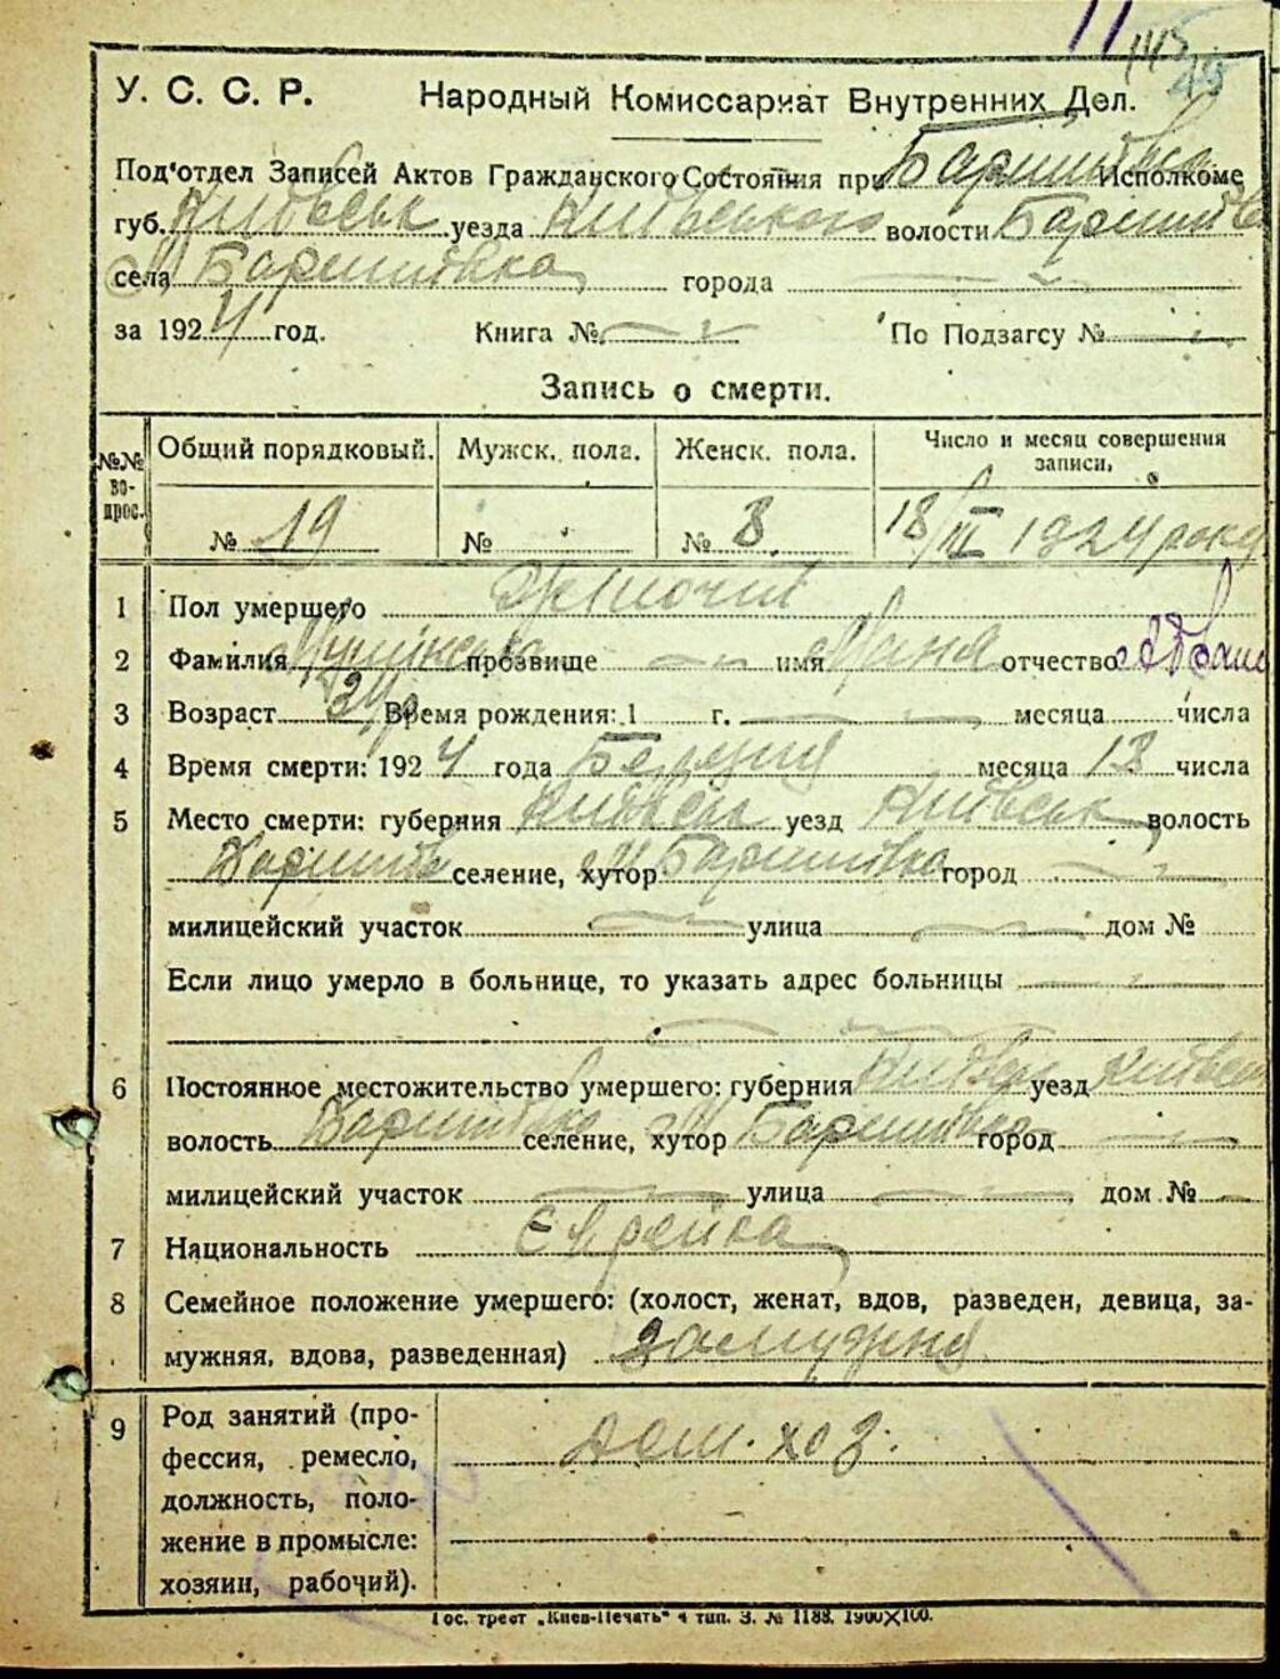 У. С. С. Р. Народный Комиссариат Внутренних Дел.
Под'отдел Записей Актов Гражданского Состояния при Исполкоме
губ. Київськ уезда Київського волости Баришів
села М Баришівка города
за 1924 год. Книга № По Подзагсу №
Запись о смерти.
№№ вопрос. Общий порядковый. Мужск. пола. Женск. пола. Число и месяц совершения записи,
№ 19 № № 8 18/III 1924 року
1 Пол умершего Жіночий
2 Фамилия прозвище имя отчество
3 Возраст Время рождения: 1 г. месяца числа
4 Время смерти: 1924 года Березня месяца 18 числа
5 Место смерти: губерния Київськ уезд Київськ волость
Баришів селение, хутор М Баришівка город
милицейский участок улица дом №
Если лицо умерло в больнице, то указать адрес больницы
6 Постоянное местожительство умершего: губерния Київськ уезд Київськ
волость Баришівка селение, хутор М Баришівка город
милицейский участок улица дом №
7 Национальность Єврейка
8 Семейное положение умершего: (холост, женат, вдов, разведен, девица, за-
мужняя, вдова, разведенная) Замужня
9 Род занятий (про-
фессия, ремесло,
должность, поло-
жение в промысле:
хозяин, рабочий).
дом. хоз.
Гос. трест „Киев-Печать“ 4 тип. З. № 1188. 1900×100.